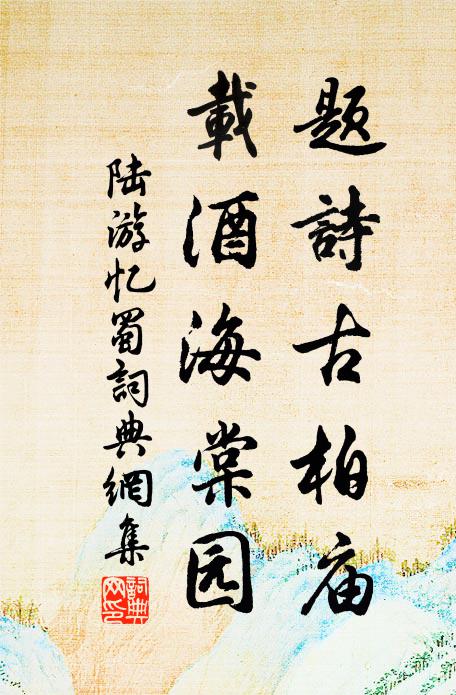 题詩古柏庙
載酒海棠园
陆游忆蜀詞典網集
詞典
网印